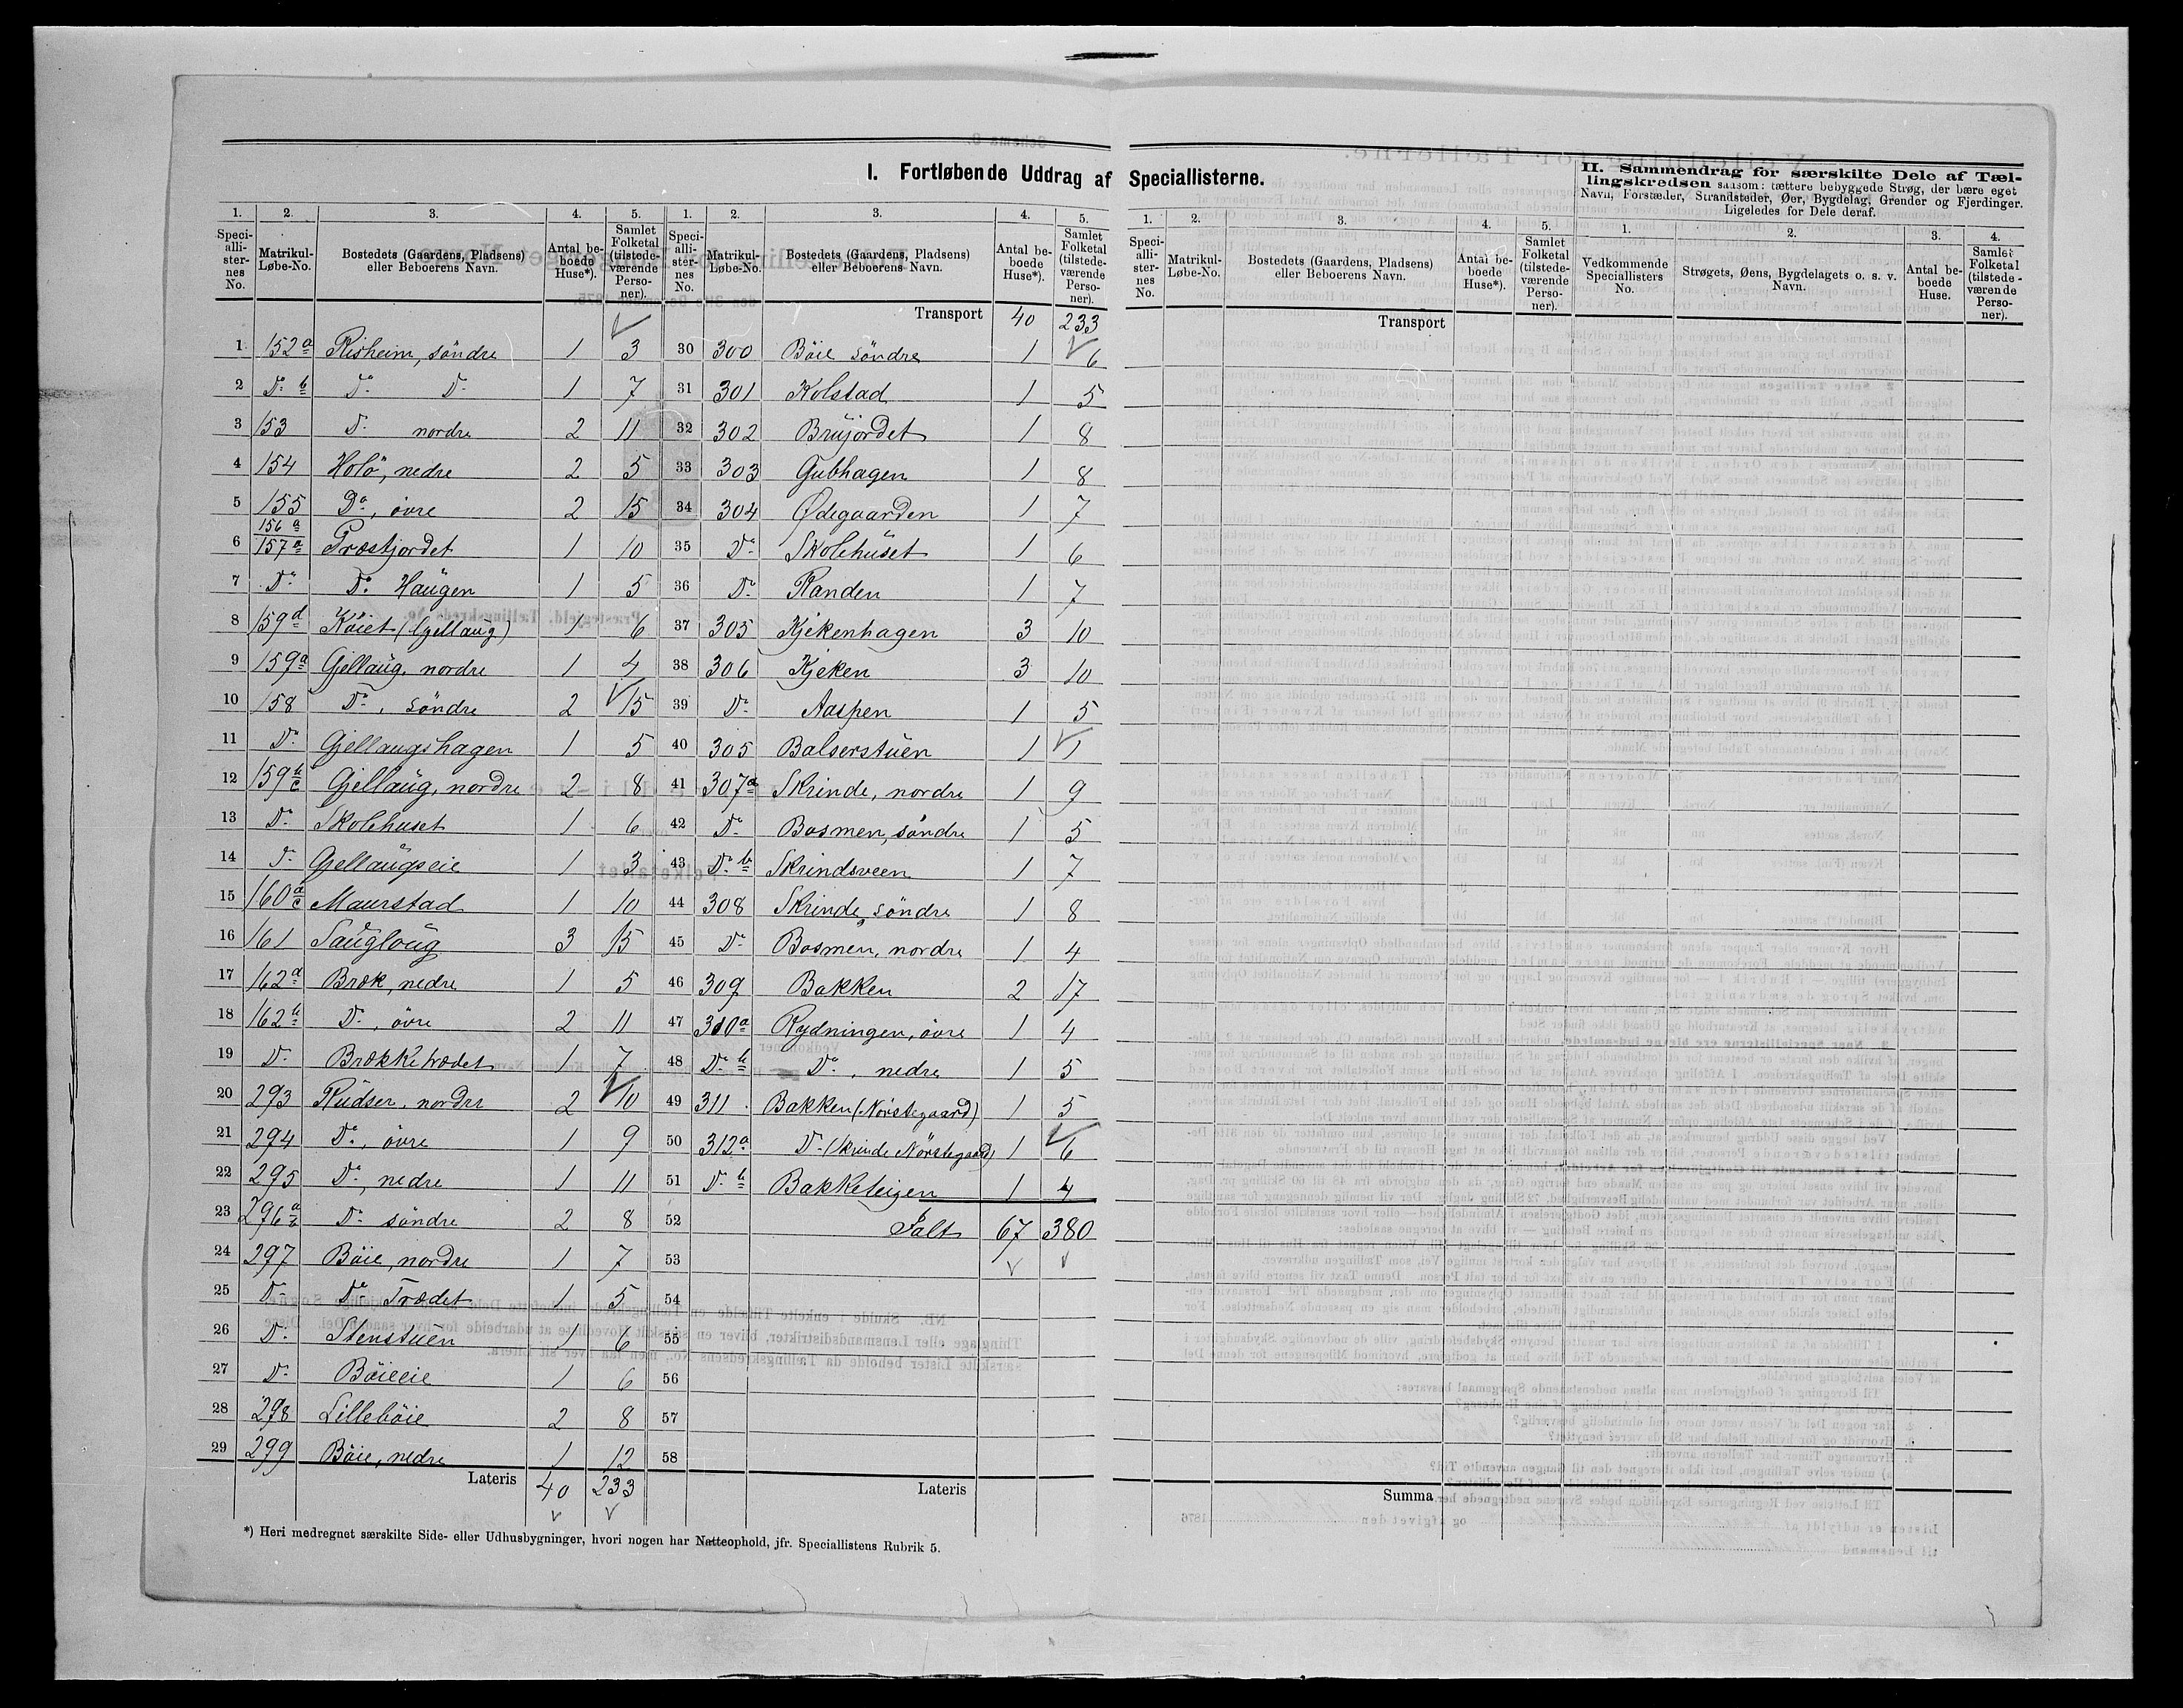 I. Fortløbende Uddrag af Speciallisterne.
II. Sammendrag for særskilte Dele af Tæl-
lingskredsen saasom: tættere bebyggede Strøg, der bære eget
Navn, Forstæder, Strandsteder, Øer, Bygdelag, Grender og Fjerdinger.
Ligeledes for Dele deraf.
1. 2. 3. 4. 5.
Speci-alli-ster-nes No. Matrikul-Løbe-No. Bostedets (Gaardens, Pladsens) eller Beboerens Navn. Antal be-boede Huse*). Samlet Folketal (tilstede-værende Perso-ner).
1 152a Risheim, söndre 1 3
2 Do b Do Do 1 7
3 153 Do nordre 2 11
4 154 Holö, nedre 2 5
5 155 Do, övre 2 15
6 156a 157a Præstjordet 1 10
7 Do Do Haugen 1 5
8 159d Köiet (Gjellaug) 1 6
9 159a Gjellaug, nordre 1 4
10 158 Do, söndre 2 15
11 Do Gjellaugshagen 1 5
12 159b c Gjellaug, nordre 2 8
13 Do Skolehuset 1 6
14 Do Gjellaugseie 1 3
15 160a c Maurstad 1 10
16 161 Saugloug 3 15
17 162a Bræk, nedre 1 5
18 162b Do, övre 2 11
19 Do Brækketrædet 1 7
20 293 Rudser, nordre 2 10
21 294 Do, övre 1 9
22 295 Do, nedre 1 11
23 296a Do söndre 2 8
24 297 Böie, nordre 1 7
25 Do Do Trædet 1 5
26 Do Stenstuen 1 6
27 Do Böieeie 1 6
28 298 Lilleböie 2 8
29 299 Böie, nedre 1 12
Lateris 40 233
1. 2. 3. 4. 5.
Speci-alli-ster-nes No. Matrikul-Løbe-No. Bostedets (Gaardens, Pladsens) eller Beboerens Navn. Antal be-boede Huse*). Samlet Folketal (tilstede-værende Perso-ner).
Transport 40 233
30 300 Böie söndre 1 6
31 301 Kolstad 1 5
32 302 Brujordet 1 8
33 303 Gubhagen 1 8
34 304 Ødegaarden 1 7
35 Do Skolehuset 1 6
36 Do Randen 1 7
37 305 Kjekenhagen 3 10
38 306 Kjeken 3 10
39 Do Aaspen 1 5
40 305 Balserstuen 1 1
41 307a Skrinde, nordre 1 9
42 Do Bosmen, söndre 1 5
43 Do b Skrindsveen 1 7
44 308 Skrinde, söndre 1 8
45 Do Bosmen, nordre 1 4
46 309 Bakken 2 17
47 310a Rydningen, övre 1 4
48 Do b Do, nedre 1 5
49 311 Bakken (Nörstegaard) 1 5
50 312a Do (Skrinde Nörstegaard) 1 6
51 Do b Bakketeigen 1 4
52 Ialt 67 380
53
54
55
56
57
58
Lateris
1. 2. 3. 4. 5.
Speci-alli-ster-nes No. Matrikul-Løbe-No. Bostedets (Gaardens, Pladsens) eller Beboerens Navn. Antal be-boede Huse*). Samlet Folketal (tilstede-værende Perso-ner).
Transport
Summa
1. 2. 3. 4.
Vedkommende Speciallisters No. Strøgets, Øens, Bygdelagets o. s. v. Navn. Antal be-boede Huse. Samlet Folketal (tilstede-værende Perso-ner).
*) Heri medregnet særskilte Side- eller Udhusbygninger, hvori nogen har Natteophold, jfr. Speciallistens Rubrik 5.